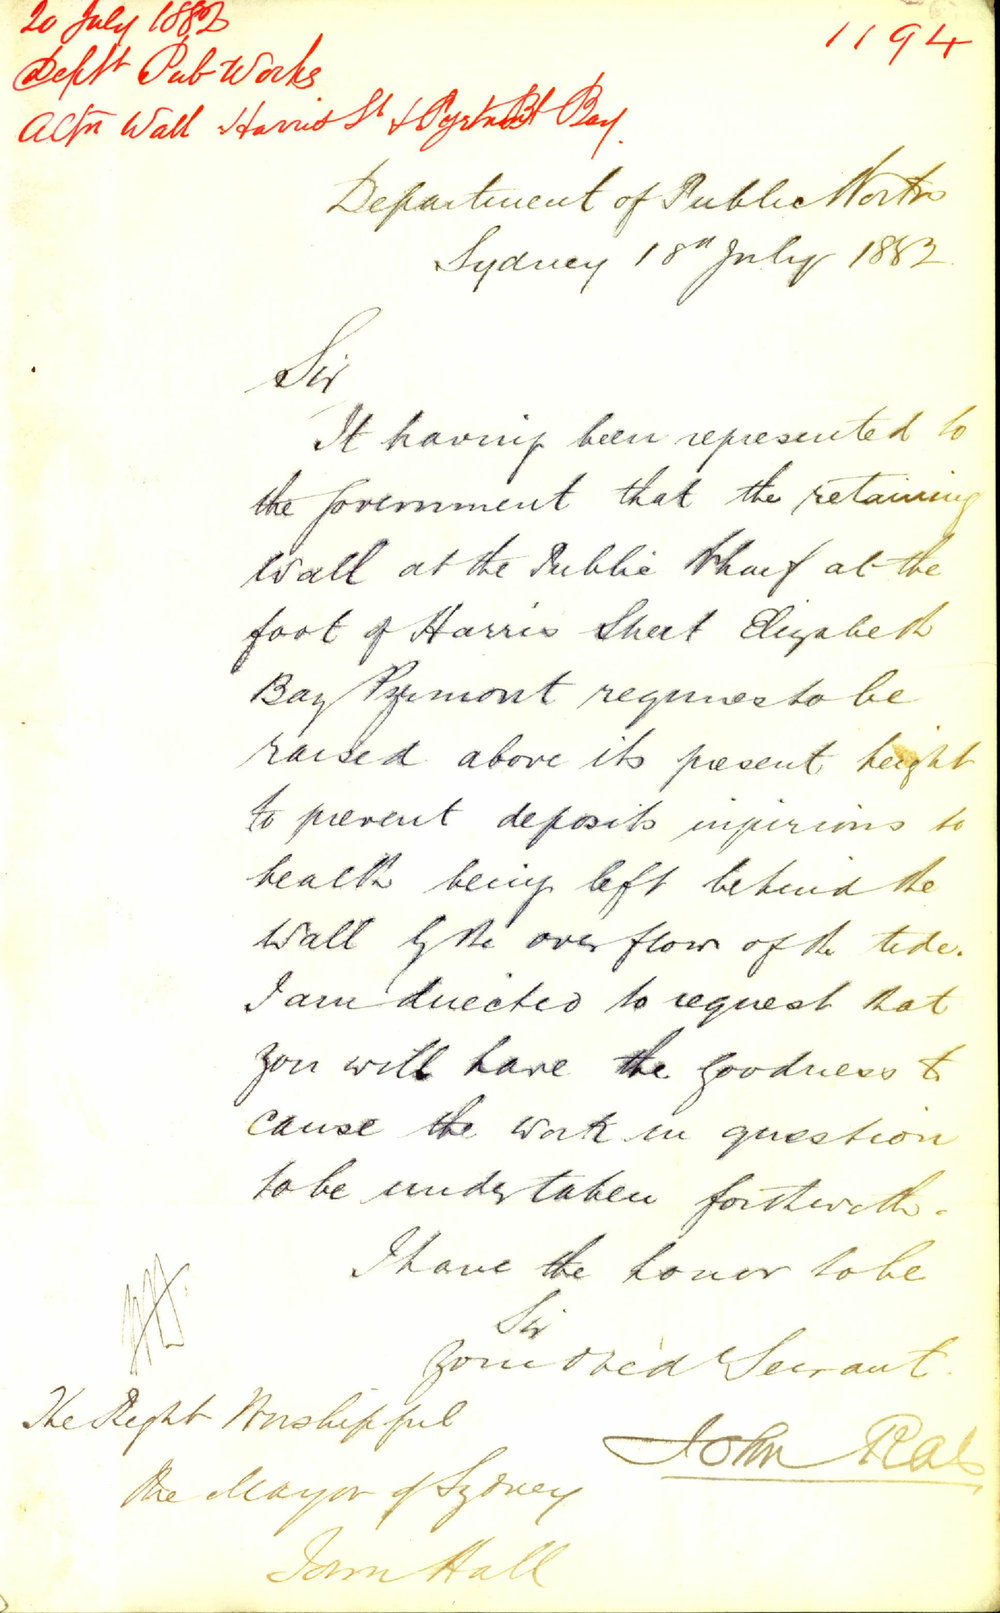 20 July 1882
1194
Deptt Pub Works
Wall Harris St & Bay.
Department of Public Works
Sydney 18th July 1882
Sir
It having been represented to
the Government that the retaining
Wall at the Public Wharf at the
foot of Harris Street Elizabeth
Bay Pyrmont requires to be
raised above its present height
to prevent deposits injurious to
health being left behind the
Wall by the over flow of the tide.
I am directed to request that
you will have the goodness to
cause the work in question
to be undertaken forthwith.
I have the honor to be
Sir
Your Obed Servant.
John Rae
The Right Worshipful
the Mayor of Sydney
Town Hall